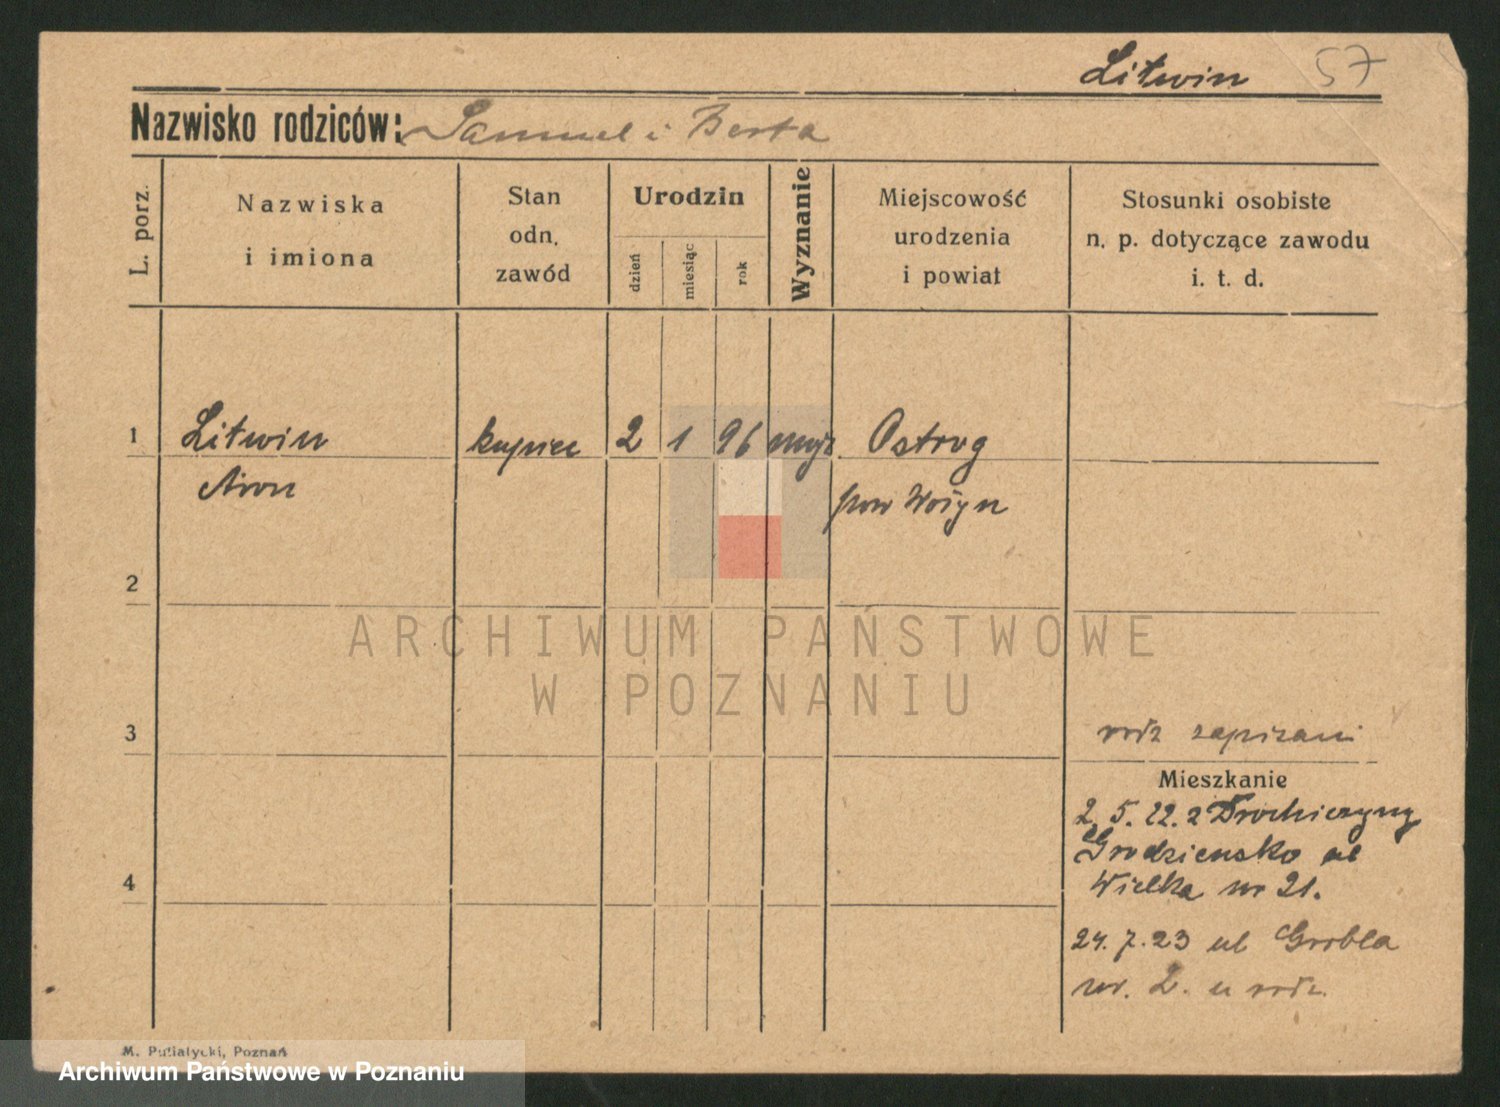 Litwin 57
Nazwisko rodziców: Samuel i Berta
L. porz.
Nazwiska
i imiona
Stan
odn.
zawód
Urodzin
dzień
miesiąc
rok
Wyznanie
Miejscowość
urodzenia
i powiat
Stosunki osobiste
n. p. dotyczące zawodu
i. t. d.
1 Litwin kupiec 2 1 96 mojż. Ostrog
Aron pow Wołyn
2
ARCHIWUM PAŃSTWOWE
W POZNANIU
3
rodz zapisani
Mieszkanie
2. 5. 22. z Drohiczyny
Grodziensko ul
4
Wielka nr 21.
24. 7. 23 ul Grobla
nr. 2. u rodz.
M. Putiatycki, Poznań
Archiwum Państwowe w Poznaniu